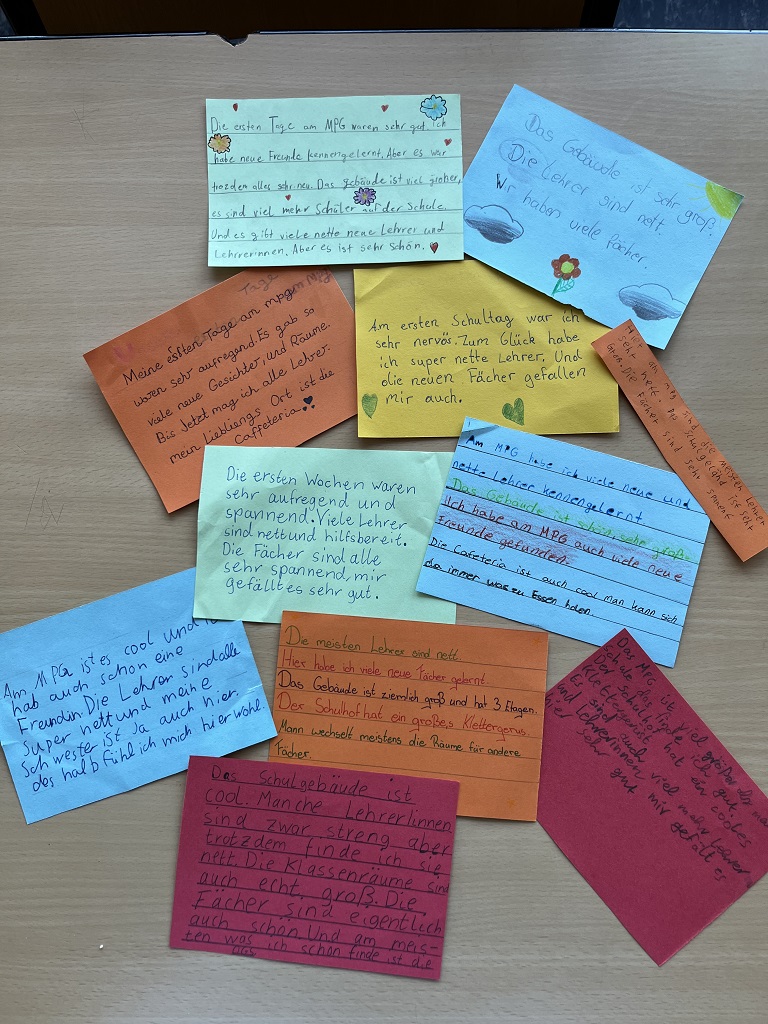 Die ersten Tage am MPG waren sehr gut ich
habe neue Freunde kennengelernt. Aber es war
trozdem alles sehr neu. Das gebäude ist viel größer,
es sind viel mehr Schüler auf der Schule.
Und es gibt viele nette neue Lehrer und
Lehrerinnen. Aber es ist sehr schön.
Das Gebäude ist sehr groß.
Die Lehrer sind nett.
Wir haben viele Fächer.
Tage
Meine ersten Tage am mpg
waren sehr aufregend. Es gab so
viele neue Gesichter, und Räume.
Bis Jetzt mag ich alle Lehrer.
mein Lieblings Ort ist die
Caffeteria
Am ersten Schultag war ich
sehr nervös. Zum Glück habe
ich super nette Lehrer. Und
die neuen Fächer gefallen
mir auch.
Hier am mpg sind die meisten Lehrer
sehr nett. Das schulgeländ ist sehr
Groß. Die Fächer sind sehr spanent
Die ersten Wochen waren
sehr aufregend und
spannend. Viele Lehrer
sind nett und hilfsbereit.
Die Fächer sind alle
sehr spannend, mir
gefällt es sehr gut.
Am MPG habe ich viele neue und
nette Lehrer kennengelernt
Das Gebäude ist schön, sehr groß.
Ich habe am MPG auch viele neue
Freunde gefunden.
Die Cafeteria ist auch cool man kann sich
da immer was zu Essen holen.
Am MPG ist es cool und
hab auch schon eine
Freundin. Die Lehrer sind alle
super nett und meine
Schwester ist Ja auch hier
des halb fühl ich mich hier wohl.
Die meisten Lehrer sind nett.
Hier habe ich viele neue Fächer gelernt.
Das Gebäude ist ziemlich groß und hat 3 Etagen.
Der Schulhof hat ein großes Klettergerüs.
Mann wechselt meistens die Räume für andere
Fächer.
Das MPG ist viel größer
Schule das finde ich gut.
Der Schulhof hat ein cooles
Klettergerüst
Es sind auch viel mehr Lehrer
und Lehrerinnen
hier sehr gut mir gefält es
Das Schulgebäude ist
cool. Manche Lehrer/innen
sind zwar streng aber
trotzdem finde ich sie
nett. Die Klassenräume sind
auch echt groß. Die
Fächer sind eigentlich
auch schön. Und am meis-
ten was ich schön finde ist die